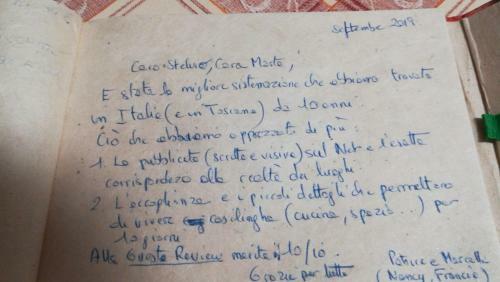 Septembre 2019
Caro Stefano, Cara Marta,
E stata la migliore sistemazione che abbiamo trovata
in Italia (e in Toscana) da 10 anni.
Ciò che abbiamo apprezzato di più :
1. La pubblicita (scritta e visiva) sul Net e l'esatta
corrispodezo alla realtà dei luoghi
2 L'accoglianza e i piccoli dettagli che permettono
di vivere casalinghe (cucina, spazio...) per
10 giorni
Alla Guesta Review merita il 10/10.
Grazie per tutto
Patrice e Marcella
(Nancy, Francia)